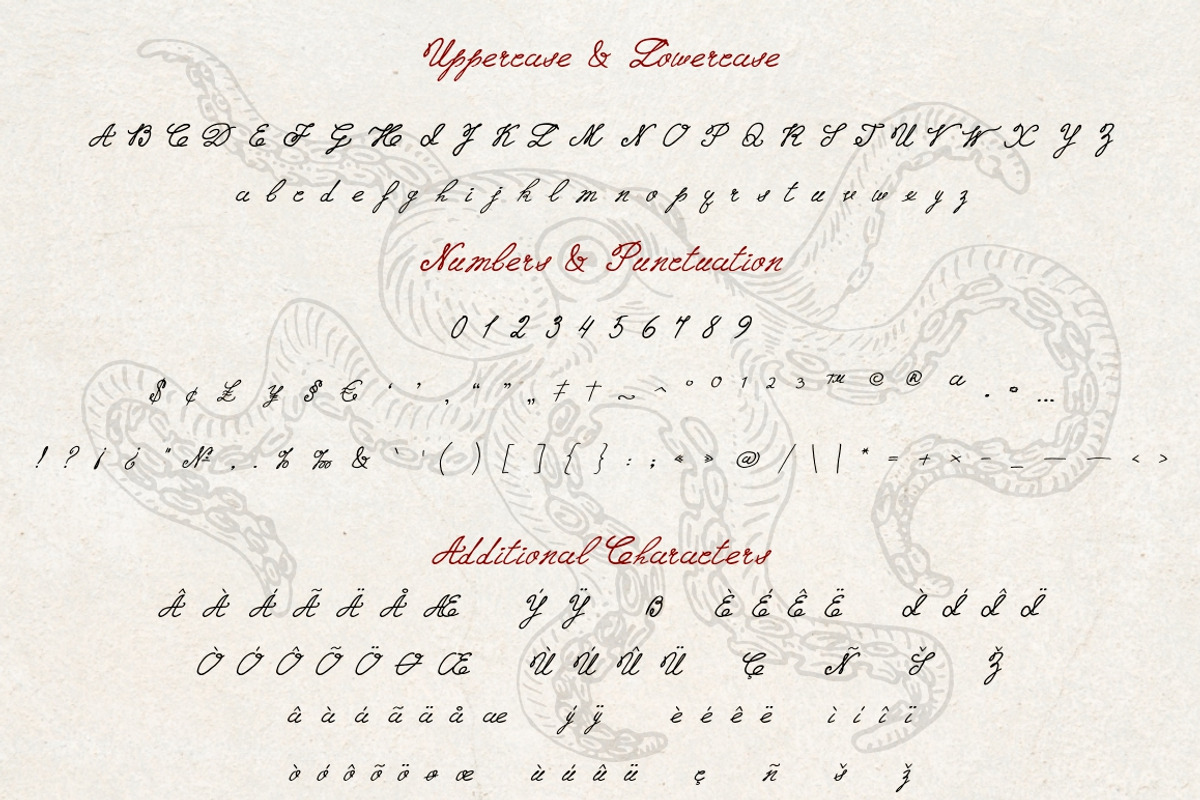 Uppercase & Lowercase
A B C D E F G H I J K L M N O P Q R S T U V W X Y Z
a b c d e f g h i j k l m n o p q r s t u v w x y z
Numbers & Punctuation
0 1 2 3 4 5 6 7 8 9
$ ¢ £ ¥ § € ‘ ’ ‚ “ ” „ ‡ † ~ ^ ° 0 1 2 3 ™ © ® a . ° …
! ? ¡ ¿ " № , . % ‰ & ` ' ( ) [ ] { } : ; « » @ / \ | * = + × - _ – — < >
Additional Characters
Â À Á Ã Ä Å Æ Ý Ÿ ß È É Ê Ë Ì Í Î Ï
Ò Ó Ô Õ Ö Ø Œ Ù Ú Û Ü Ç Ñ Š Ž
â à á ã ä å æ ý ÿ è é ê ë ì í î ï
ò ó ô õ ö ø œ ù ú û ü ç ñ š ž